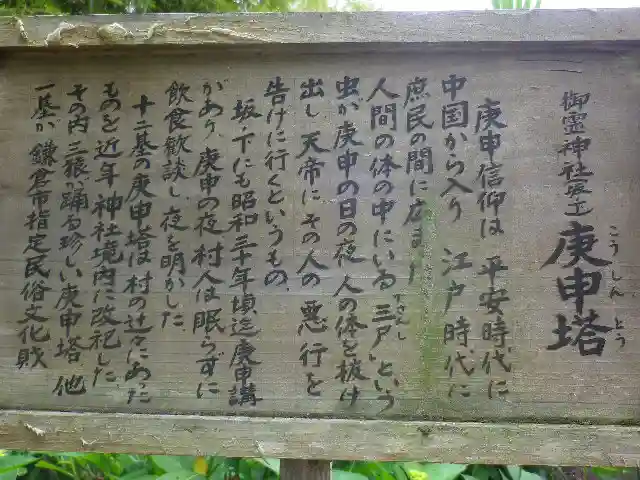 御霊神社
庚申塔
こうしんとう
庚申信仰は 平安時代に
中国から入り 江戸時代に
庶民の間に広まった
人間の体の中にいる〝三尸〟という
さんし
虫が庚申の日の夜 人の体を抜け
出し 天帝にその人の 悪行を
告げに行くというもの。
坂ノ下にも昭和三十年頃迄庚申講
があり 庚申の夜 村人は眠らずに
飲食歓談し、夜を明かした
十二基の庚申塔は村の辻々にあった
ものを近年神社境内に改祀した。
その内 三猿が踊る珍しい庚申塔 他
一基が 鎌倉市指定民俗文化財